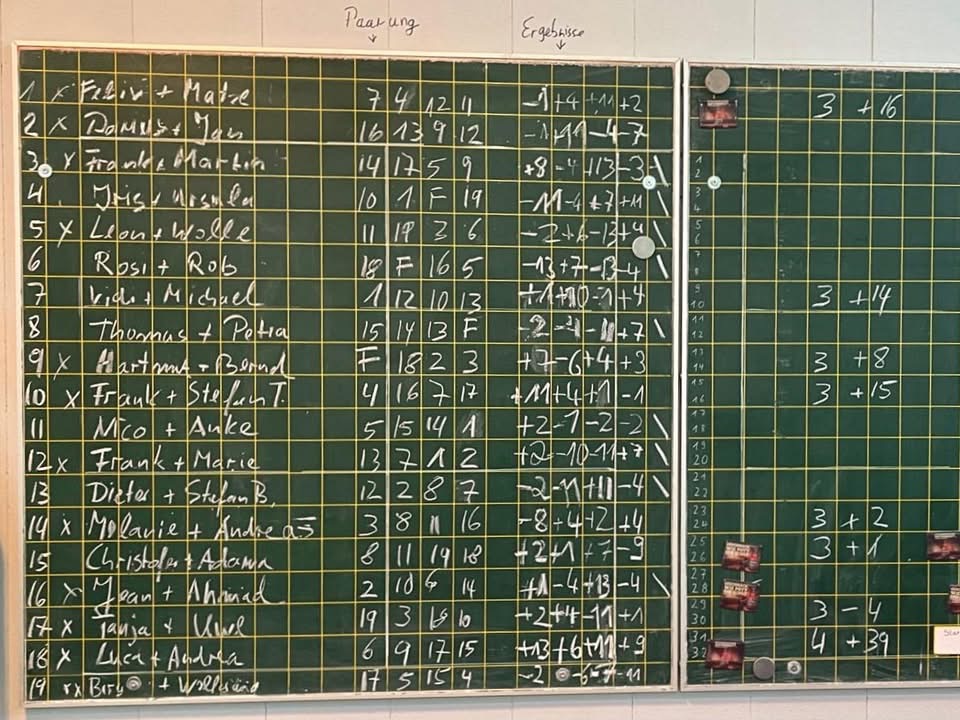 Paarung
Ergebnisse
1 x Felix + Matze 7 4 12 11 -1 +4 +11 +2 3 +16
2 x + Jan 16 13 9 12 -1 +11 -4 -7
3 x Frank + Martin 14 17 5 9 +8 -4 +13 -3 \
4 Iris + Ursula 10 1 F 19 -11 -4 +7 +11 \
5 x Leon + Wolle 11 19 3 6 -2 +6 -13 +4 \
6 Rosi + Rob 18 F 16 5 -13 +7 -13 -4 \
7 + Michael 1 12 10 13 +1 +10 -1 +4 3 +14
8 Thommas + Petra 15 14 13 F -2 -4 -11 +7 \
9 x Hartmut + Bernd F 18 2 3 +7 -6 +4 +3 3 +8
10 x Frank + Stefan T. 4 16 7 17 +11 +4 +1 -1 3 +15
11 Nico + Anke 5 15 14 1 +2 -1 -2 -2 \
12 x Frank + Marie 13 7 1 2 +2 -10 -11 +7 \
13 Dieter + Stefan B. 12 2 8 7 -2 -11 +11 -4 \
14 x Melanie + Andreas 3 8 11 16 -8 +4 +2 +4 3 +2
15 Christofer + 8 11 19 18 +2 +1 +7 -9 3 +1
16 x Jean + Ahmad 2 10 6 14 +1 -4 +13 -4 \
17 x Tanja + Uwe 19 3 18 10 +2 +4 -11 +1 3 -4
18 x Luca + Andrea 6 9 17 15 +13 +6 +11 +9 4 +39
19 + Wolfgang 17 5 15 4 -2 -6 -7 -11
1
2
3
4
5
6
7
8
9
10
11
12
13
14
15
16
17
18
19
20
21
22
23
24
25
26
27
28
29
30
31
32